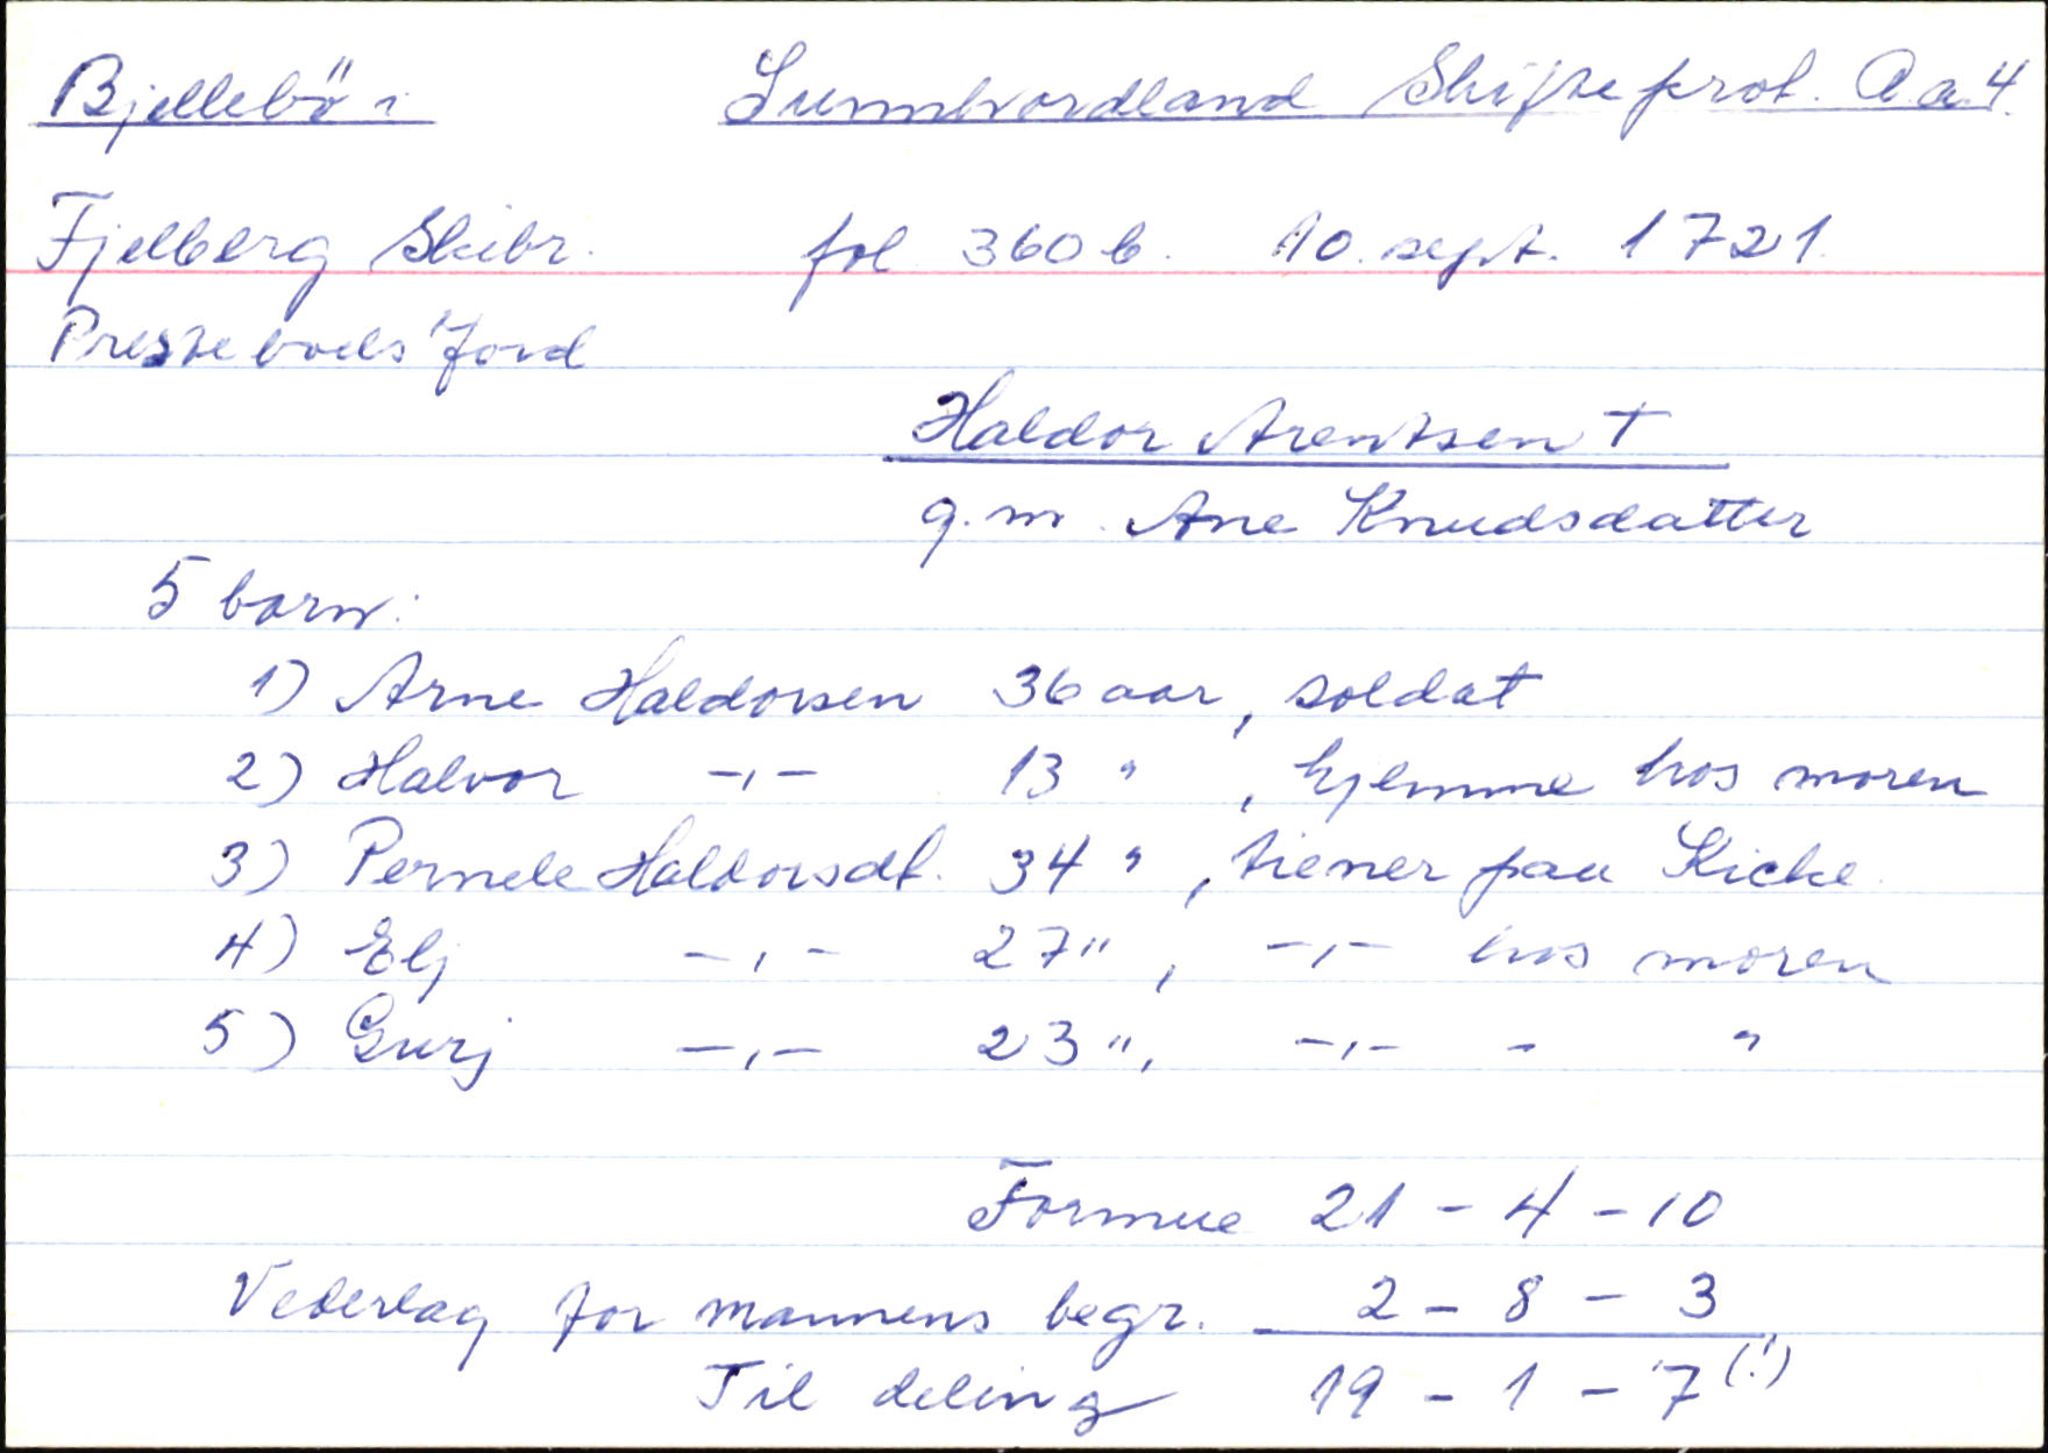 Bjellebö i Sunnhordland Skifteprot. A a 4.
Fjelberg Skibr. fol 360 b. 10. sept. 1721.
Presteboels jord
Haldor Arentsen †
g. m. Ane Knudsdatter
5 barn:
1) Arne Haldorsen 36 aar, soldat
2) Halvor -,- 13 " , hjemme hos moren
3) Pernele Haldorsdt. 34 " , tiener paa Kicke
4) Elj -,- 27 ", -,- hos moren
5) Gurj -,- 23 ", -,- - "
Formue 21 - 4 - 10
Vederlag for mannens begr. 2 - 8 - 3
Til deling 19 - 1 - 7 (!)